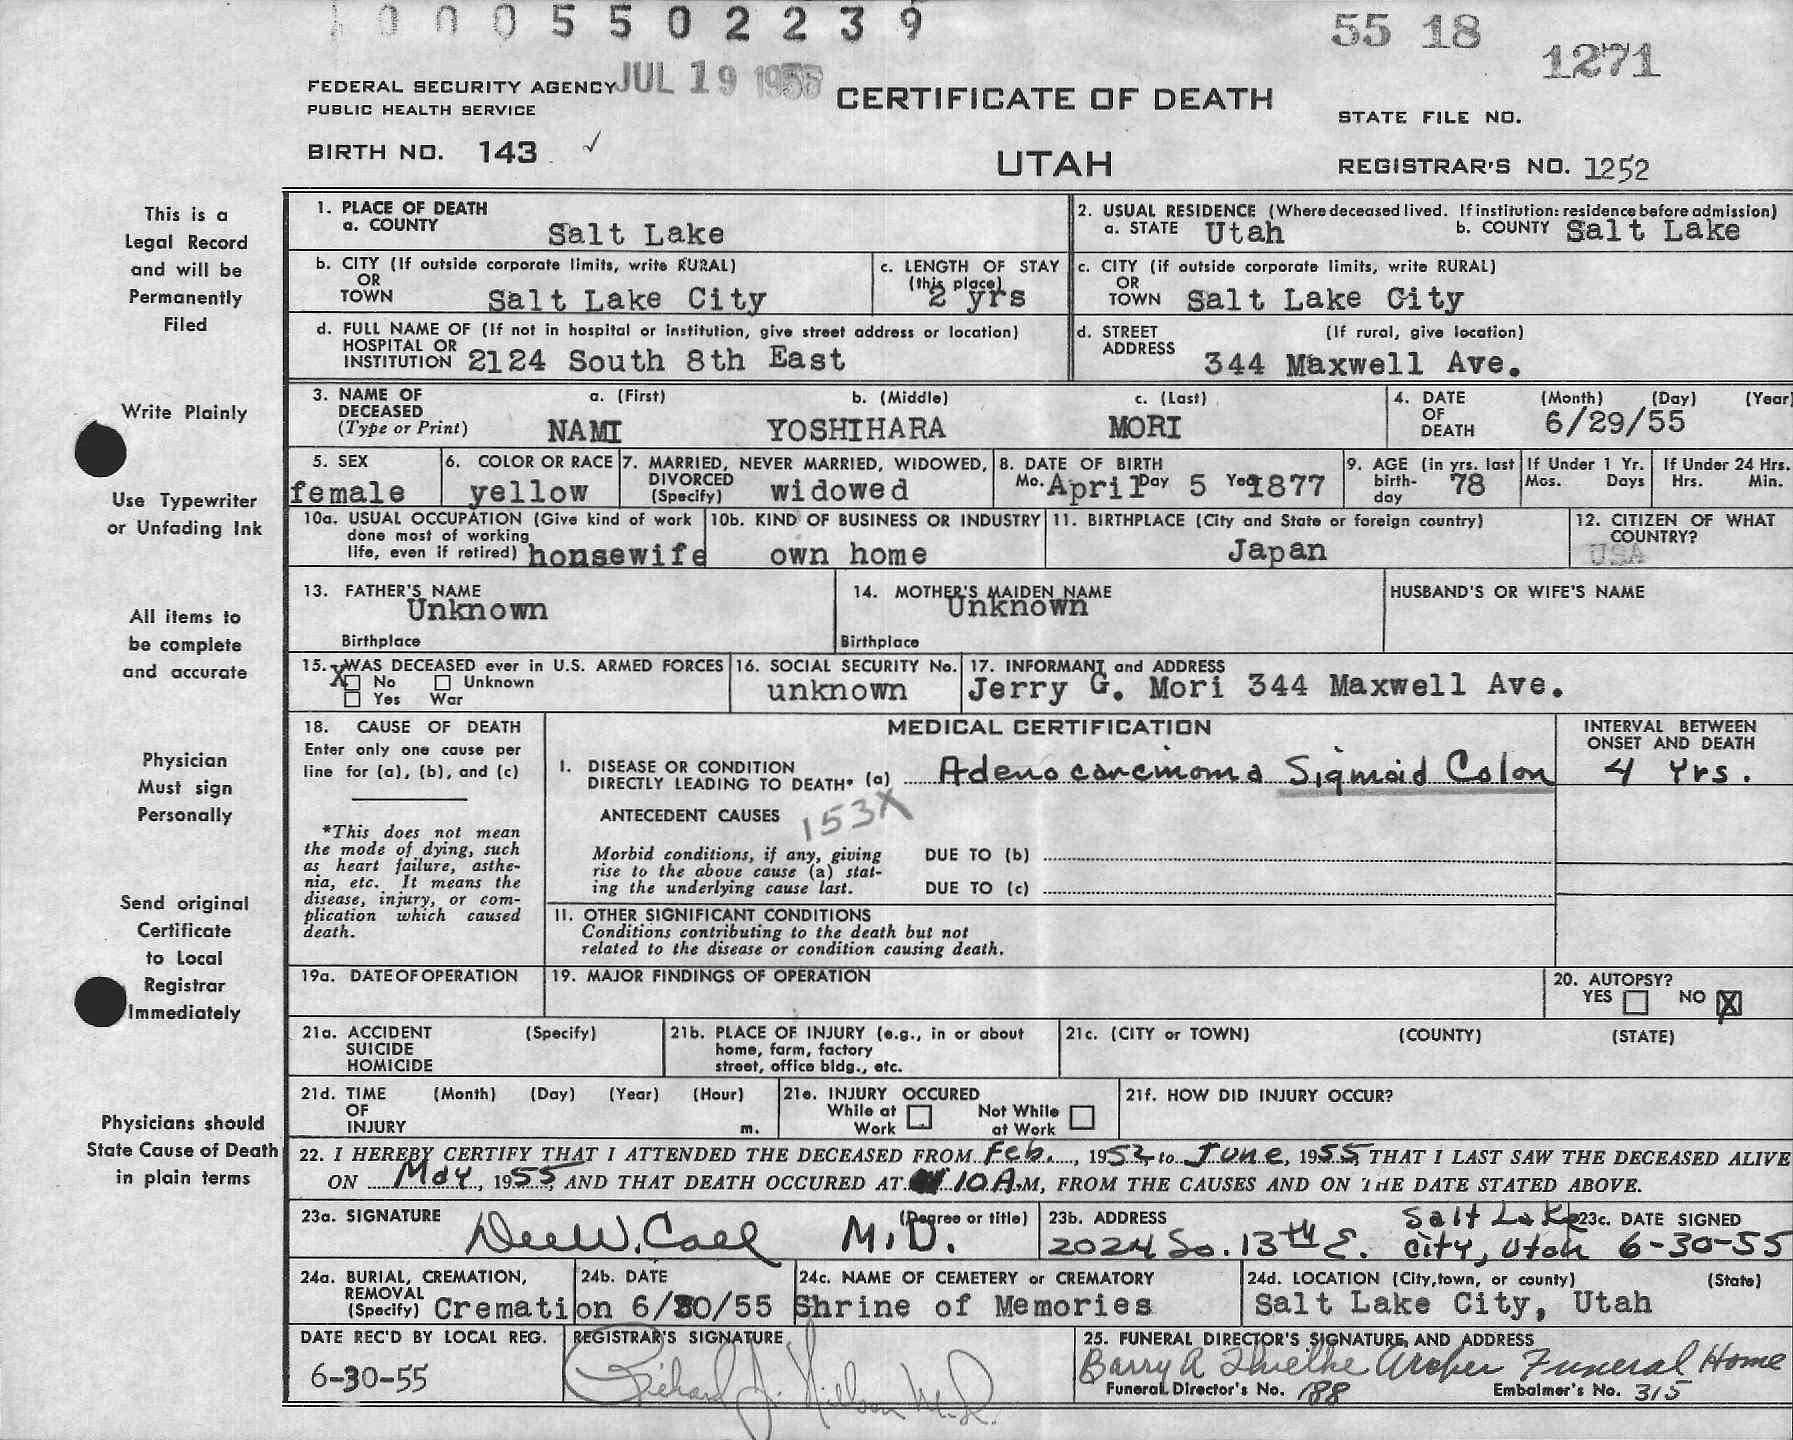 10005502239
55 18
1271
FEDERAL SECURITY AGENCY JUL 19 1955
PUBLIC HEALTH SERVICE
CERTIFICATE OF DEATH
STATE FILE NO.
BIRTH NO. 143 ✓
UTAH
REGISTRAR'S NO. 1252
This is a
Legal Record
and will be
Permanently
Filed
Write Plainly
Use Typewriter
or Unfading Ink
All items to
be complete
and accurate
Physician
Must sign
Personally
Send original
Certificate
to Local
Registrar
Immediately
Physicians should
State Cause of Death
in plain terms
1. PLACE OF DEATH
a. COUNTY Salt Lake
2. USUAL RESIDENCE (Where deceased lived. If institution: residence before admission)
a. STATE Utah b. COUNTY Salt Lake
b. CITY (If outside corporate limits, write RURAL)
OR
TOWN Salt Lake City
c. LENGTH OF STAY
(this place)
2 yrs
c. CITY (if outside corporate limits, write RURAL)
OR
TOWN Salt Lake City
d. FULL NAME OF (If not in hospital or institution, give street address or location)
HOSPITAL OR
INSTITUTION 2124 South 8th East
d. STREET (If rural, give location)
ADDRESS
344 Maxwell Ave.
3. NAME OF a. (First) b. (Middle) c. (Last)
DECEASED
(Type or Print) NAMI YOSHIHARA MORI
4. DATE (Month) (Day) (Year)
OF
DEATH 6/29/55
5. SEX
female
6. COLOR OR RACE
yellow
7. MARRIED, NEVER MARRIED, WIDOWED,
DIVORCED
(Specify) widowed
8. DATE OF BIRTH
Mo. April Day 5 Year 1877
9. AGE (in yrs. last
birth-
day 78
If Under 1 Yr.
Mos. Days
If Under 24 Hrs.
Hrs. Min.
10a. USUAL OCCUPATION (Give kind of work
done most of working
life, even if retired) honsewife
10b. KIND OF BUSINESS OR INDUSTRY
own home
11. BIRTHPLACE (City and State or foreign country)
Japan
12. CITIZEN OF WHAT
COUNTRY?
USA
13. FATHER'S NAME
Unknown
Birthplace
14. MOTHER'S MAIDEN NAME
Unknown
Birthplace
HUSBAND'S OR WIFE'S NAME
15. WAS DECEASED ever in U.S. ARMED FORCES
X No Unknown
Yes War
16. SOCIAL SECURITY No.
unknown
17. INFORMANT and ADDRESS
Jerry G. Mori 344 Maxwell Ave.
18. CAUSE OF DEATH
Enter only one cause per
line for (a), (b), and (c)
*This does not mean
the mode of dying, such
as heart failure, asthe-
nia, etc. It means the
disease, injury, or com-
plication which caused
death.
MEDICAL CERTIFICATION
INTERVAL BETWEEN
ONSET AND DEATH
I. DISEASE OR CONDITION
DIRECTLY LEADING TO DEATH* (a) Adenocarcinoma Sigmoid Colon 4 Yrs.
ANTECEDENT CAUSES 153X
Morbid conditions, if any, giving
rise to the above cause (a) stat-
ing the underlying cause last.
DUE TO (b)
DUE TO (c)
II. OTHER SIGNIFICANT CONDITIONS
Conditions contributing to the death but not
related to the disease or condition causing death.
19a. DATE OF OPERATION
19. MAJOR FINDINGS OF OPERATION
20. AUTOPSY?
YES NO X
21a. ACCIDENT (Specify)
SUICIDE
HOMICIDE
21b. PLACE OF INJURY (e.g., in or about
home, farm, factory
street, office bldg., etc.
21c. (CITY or TOWN) (COUNTY) (STATE)
21d. TIME (Month) (Day) (Year) (Hour)
OF
INJURY m.
21e. INJURY OCCURED
While at Work Not While at Work
21f. HOW DID INJURY OCCUR?
22. I HEREBY CERTIFY THAT I ATTENDED THE DECEASED FROM Feb., 1952, to June, 1955, THAT I LAST SAW THE DECEASED ALIVE
ON May, 1955, AND THAT DEATH OCCURED AT 10 A.M, FROM THE CAUSES AND ON THE DATE STATED ABOVE.
23a. SIGNATURE (Degree or title)
Dee W. Call M.D.
23b. ADDRESS
2024 So. 13th E. Salt Lake City, Utah
23c. DATE SIGNED
6-30-55
24a. BURIAL, CREMATION,
REMOVAL
(Specify) Cremation
24b. DATE
6/30/55
24c. NAME OF CEMETERY or CREMATORY
Shrine of Memories
24d. LOCATION (City, town, or county) (State)
Salt Lake City, Utah
DATE REC'D BY LOCAL REG.
6-30-55
REGISTRAR'S SIGNATURE
Richard J. M.D.
25. FUNERAL DIRECTOR'S SIGNATURE AND ADDRESS
Barry A Archer Funeral Home
Funeral Director's No. 188 Embalmer's No. 315